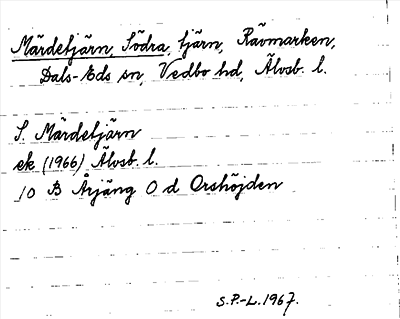 Mårdetjärn, Södra, tjärn, Rävmarken,
Dals-Eds sn, Vedbo hd, Älvsb. l.
S. Mårdetjärn
ek (1966) Älvsb. l.
10 B Årjäng O d Orshöjden
S.P.-L. 1967.